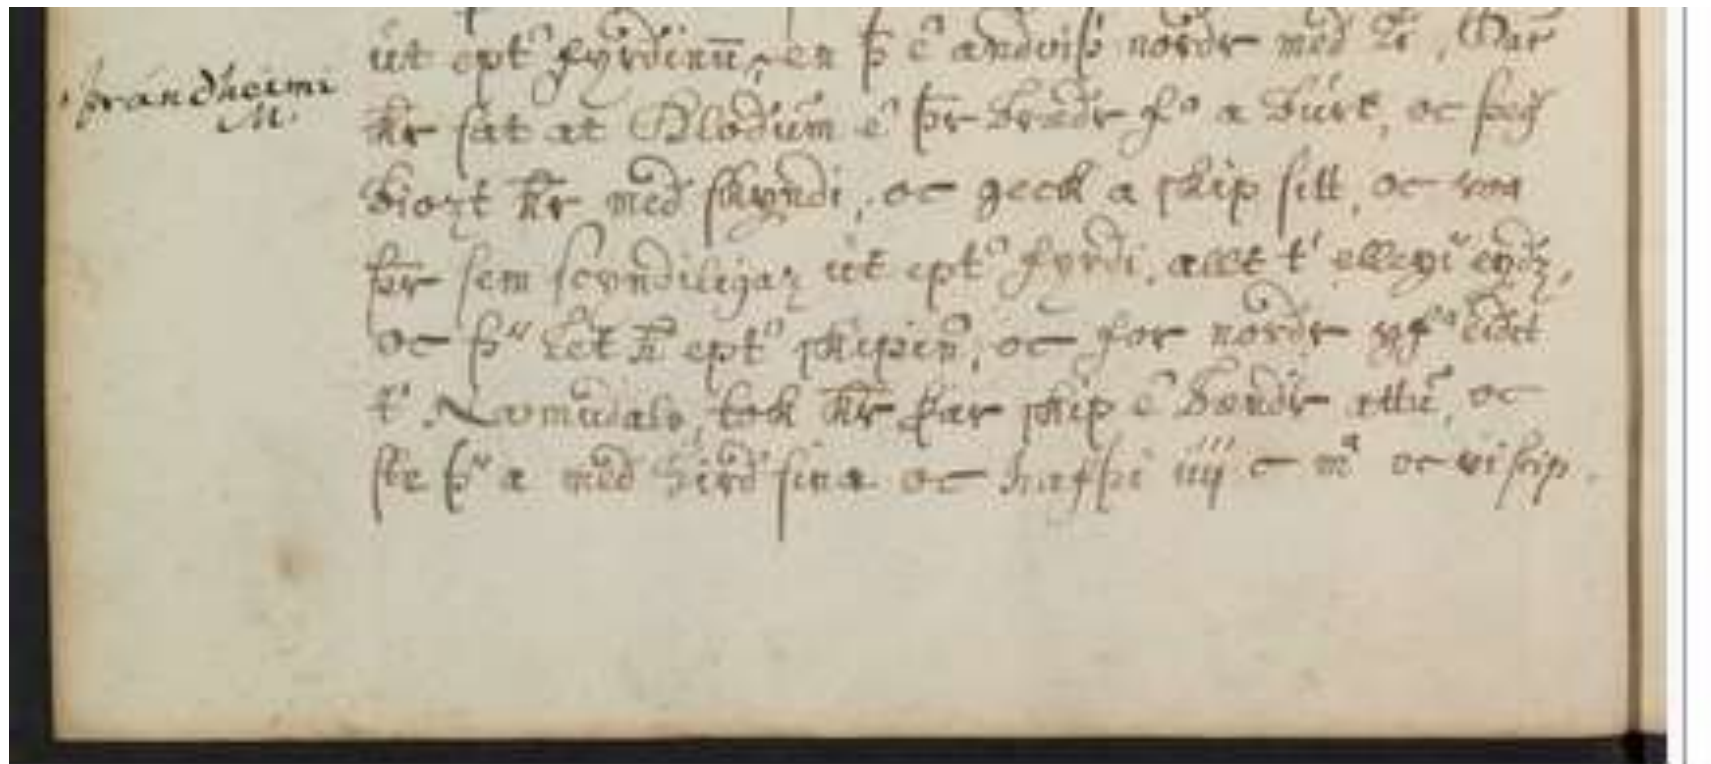 þrandheimi
M.
út ept͛ fyrdinū, en þ e͛ andviþ nordr med
k̄r sat at Hlodum e͛ þr brædr f a burt, oc þeg
biozt k̄r med skyndi, oc geck a skip sitt, oc
þr sem scyndiligaz út ept͛ fyrdi, allt t' ellegi
oc þ let h̄ ept͛ skipin, oc for nordr yf͛ eidit
t' Nomudals, tok k̄r þar skip e͛ bændr attu, oc
ste þ a med hird sina oc hafþi iiij c mᵃ oc vi scip.